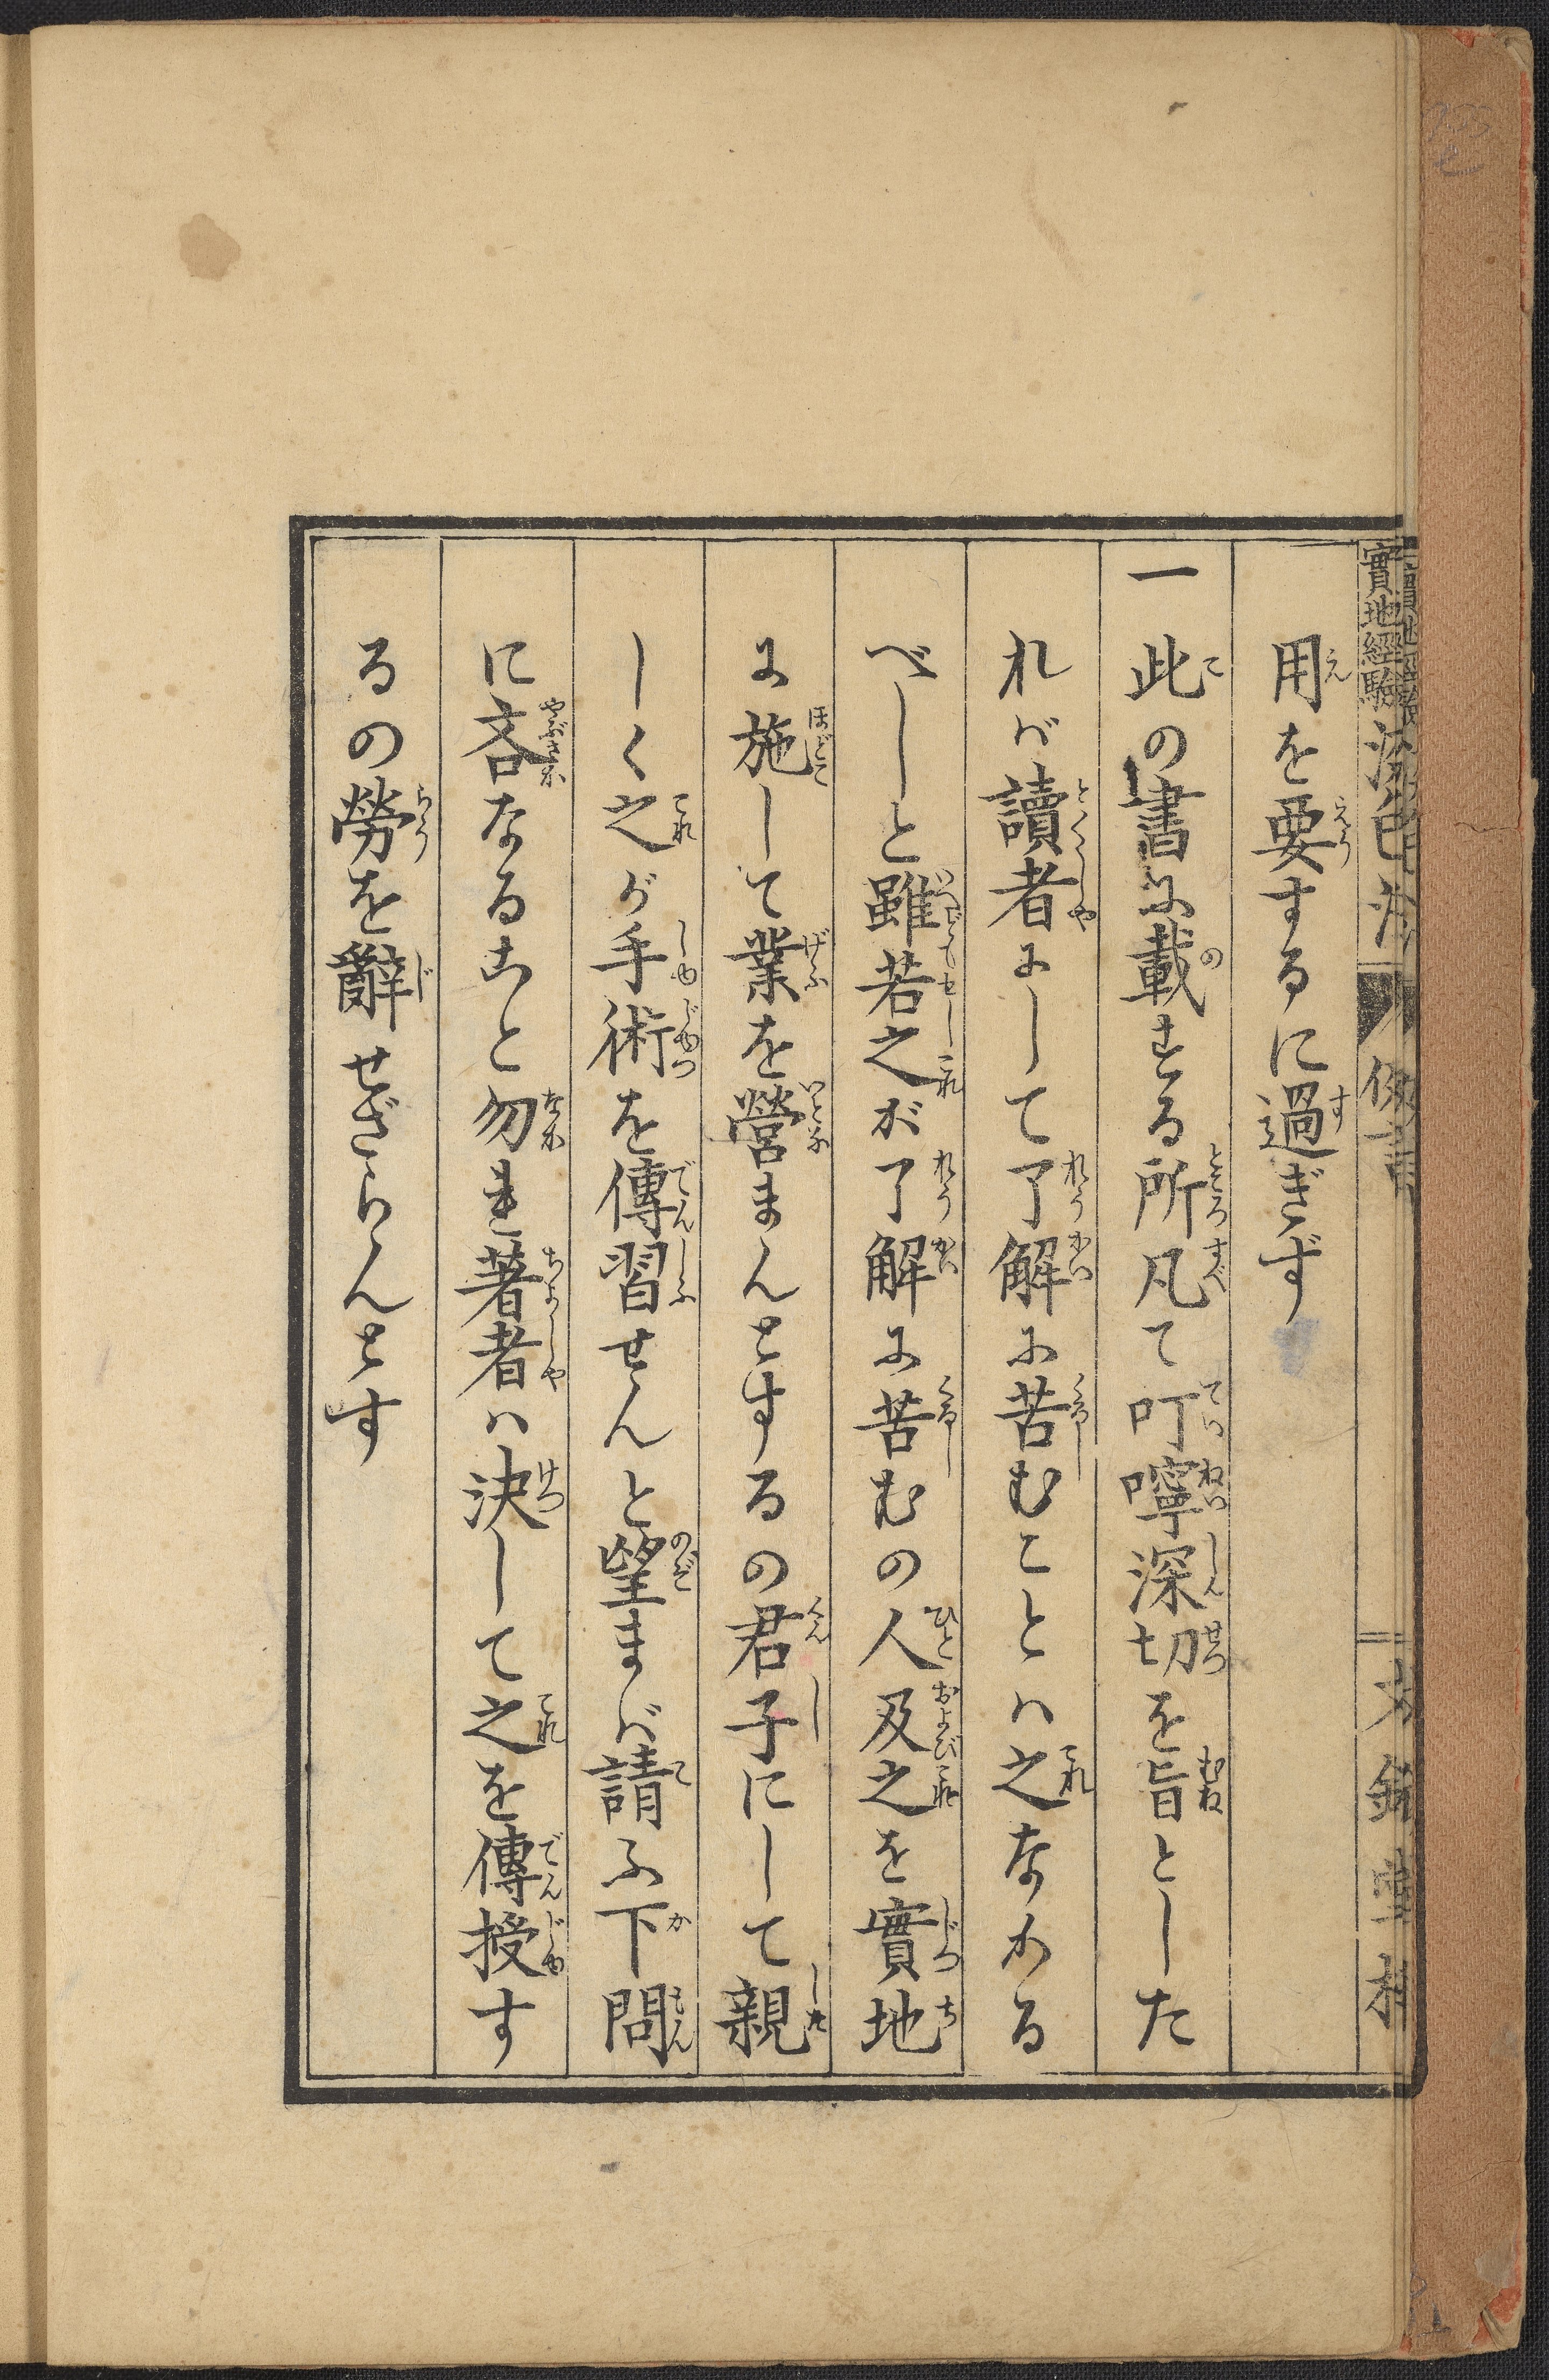 實地經驗 染色法 例言
用を要するに過ぎず
一此の書に載する所凡て叮嚀深切を旨とした
れバ讀者にして了解に苦むことハ之なかる
べしと雖若之が了解に苦むの人及之を實地
に施して業を營まんとするの君子にして親
しく之が手術を傳習せんと望まバ請ふ下問
に吝なること勿れ著者ハ決して之を傳授す
るの勞を辭せざらんとす